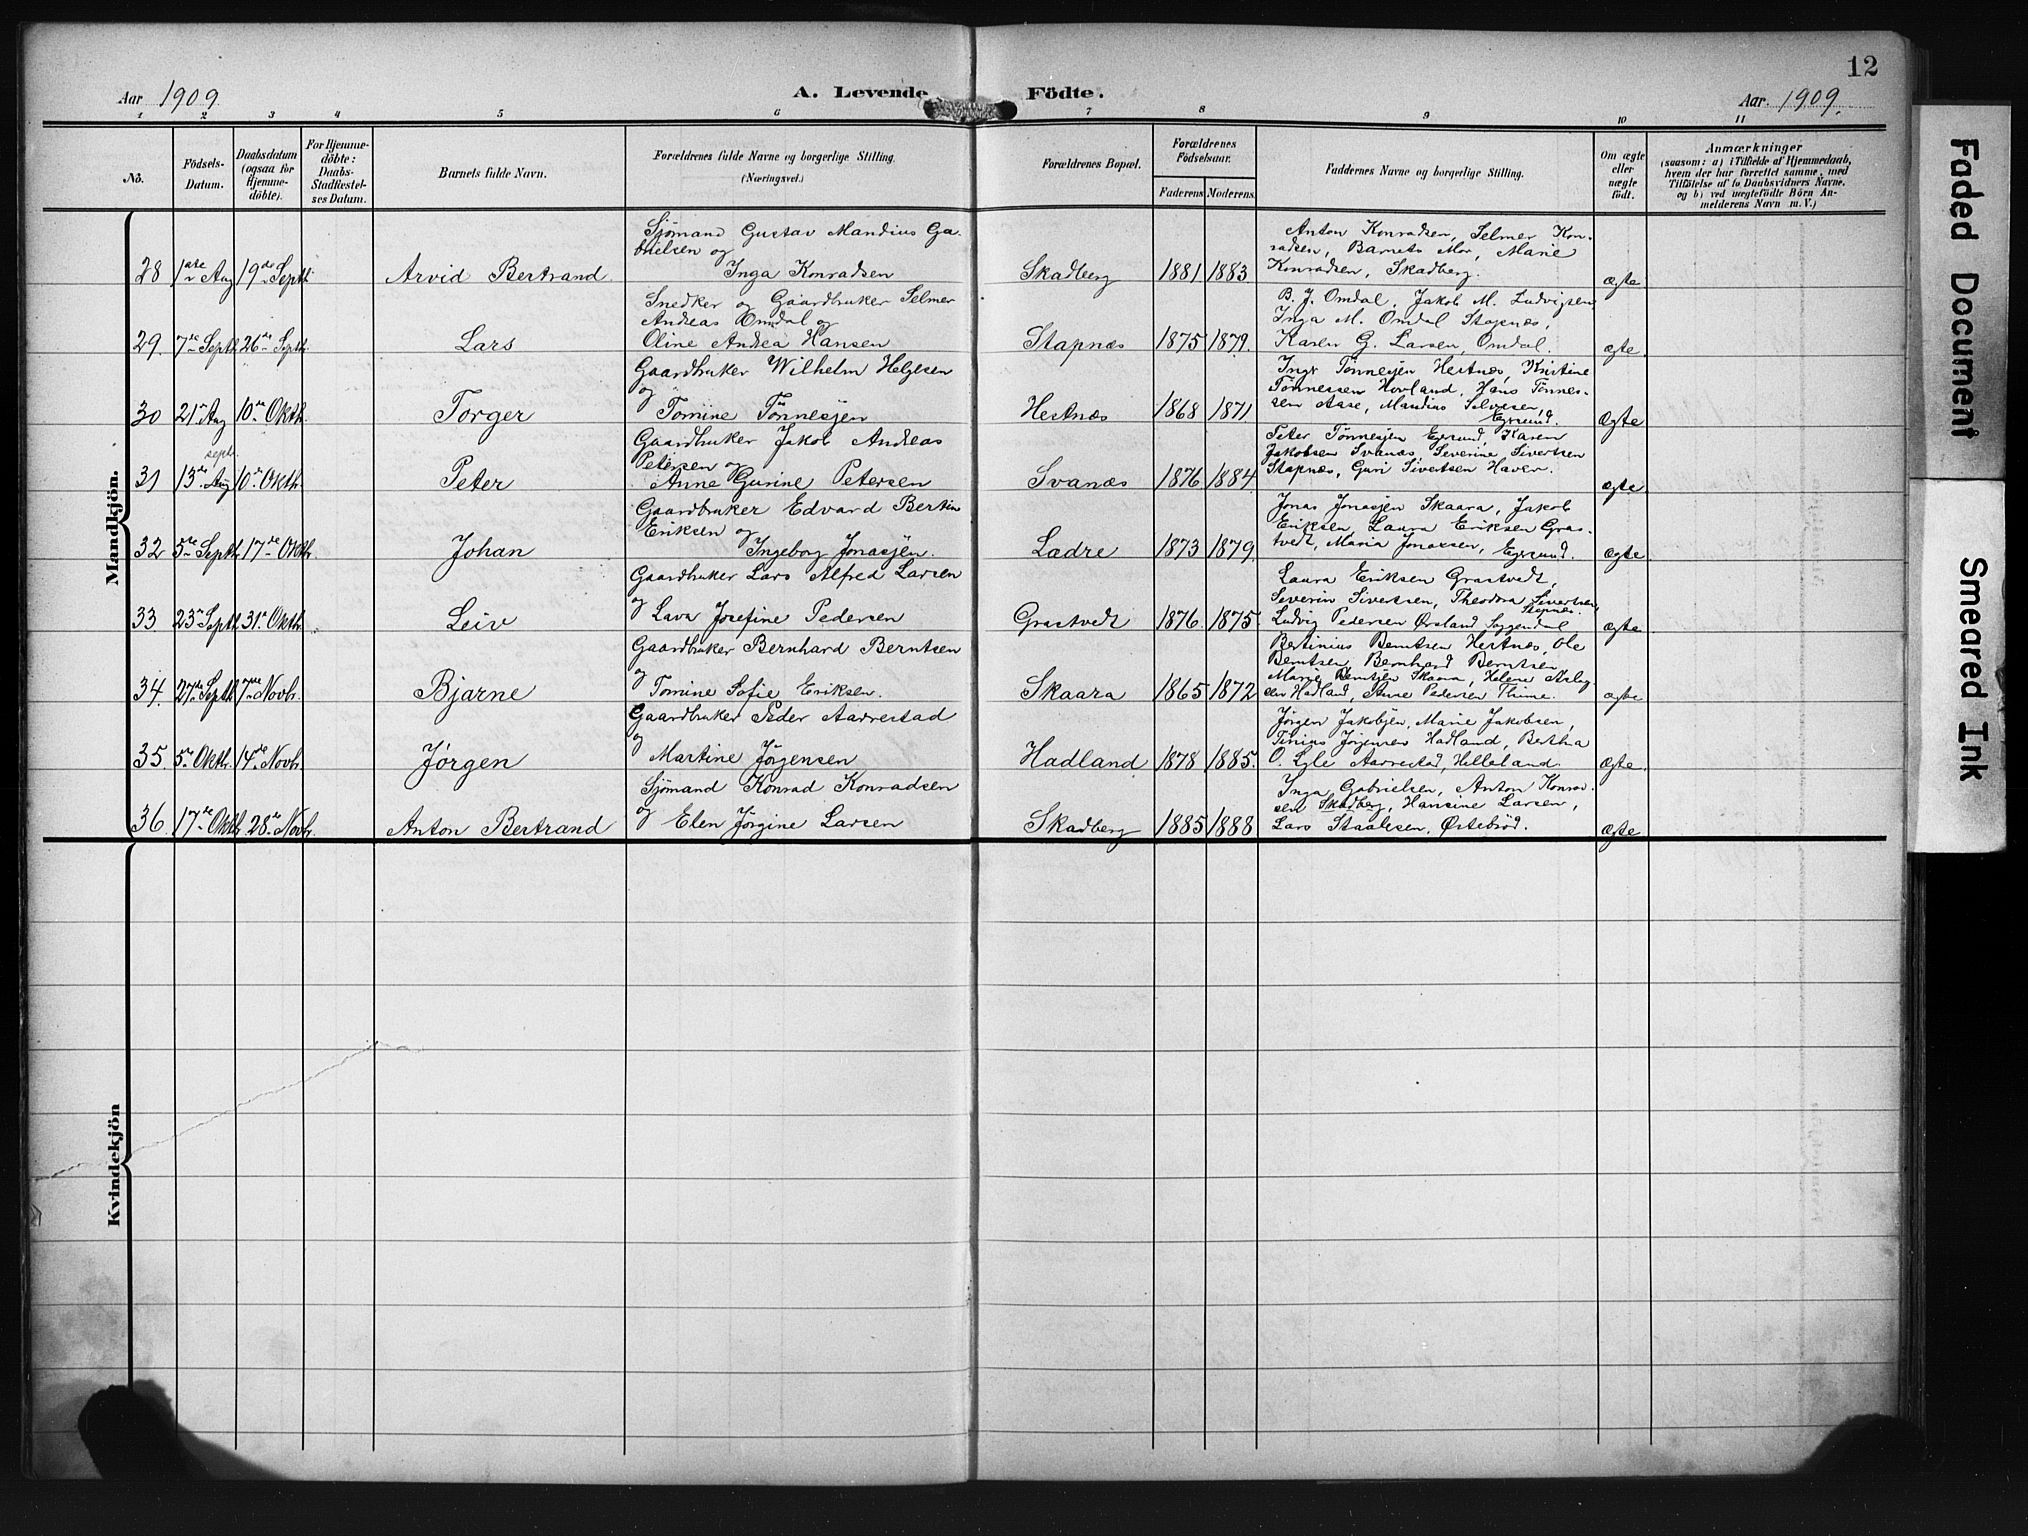 12
Aar 1909. A. Levende Födte. Aar 1909.
1 2 3 4 5 6 7 8 9 10 11
No.
Födsels-
Datum.
Daabsdatum
(ogsaa for
Hjemme-
döbte).
For Hjemme-
döbte:
Daabs-
Stadfæstel-
ses Datum.
Barnets fulde Navn.
Forældrenes fulde Navne og borgerlige Stilling.
(Næringsvei.)
Forældrenes Bopæl.
Forældrenes
Födselsaar.
Faderens Moderens
Faddernes Navne og borgerlige Stilling.
Om ægte
eller
uægte
födt.
Anmærkninger
(saasom: a) i Tilfælde af Hjemmedaab,
hvem der har forrettet samme, med
Tilföielse af to Daabsvidners Navne,
og b) ved uægtefödte Börn An-
melderens Navn m. V.)
Mandkjön.
28 1ste Aug 19de Septb. Arvid Bertrand
Sjømand Gustav Mandius Ga-
brielsen og
Inga Konradsen
Skadberg 1881 1883
Anton Konradsen, Selmer Kon-
radsen, Barnets Mor, Marie
Konradsen, Skadberg.
ægte
29. 7de Septb. 26de Septb. Lars
Snedker og Gaardbruker Selmer
Andreas Omdal og
Oline Andrea Hansen
Stapnæs 1875 1879.
B. J. Omdal, Jakob M. Ludvigsen,
Inga M. Omdal Stapnæs,
Karen G. Larsen, Omdal.
ægte
30 21de Aug 10de Oktb. Torger
Gaardbruker Wilhelm Helgesen
og
Tomine Tönnesjen
Hestnæs 1868 1871
Inger Tönnesjen Hestnæs, Kristine
Tönnessen Hovland, Hans Tönnes-
sen Aase, Mandius
Egersund.
Ægte
septb.
31 13de Aug 10de Oktb. Peter
Gaardbruker Jakob Andreas
Petersen og
Anne Gurine Petersen
Svanæs 1876 1884
Peter Tönnesjen Egersund, Karen
Jakobsen Svanæs, Severine Sivertsen
Stapnæs, Guri Sivertsen Haver.
ægte
32 5te Septb. 17de Oktb. Johan
Gaardbruker Edvard Bertin
Eriksen og
Ingeborg Jonasjen.
Ladre 1873 1879.
Jonas Jonasjen Skaara, Jakob
Eriksen, Laura Eriksen Gras-
tvedt, Maria Jonassen, Egersund.
ægte
33 23de Septb. 31te Oktb. Leiv
Gaardbruker Lars Alfred Larsen
og Lava Josefine Pedersen
Grastvedt 1876. 1875.
Laura Eriksen Grastvedt,
Severin Sivertsen, Theodora Sivertsen
Stapnæs.
Ludvig Pedersen Ørsland Soggendal
ægte
34. 27de Septb. 7de Novb. Bjarne
Gaardbruker Bernhard Berntsen
og Tomine Sofie Eriksen.
Skaara 1865 1872
Bertinius Berntsen Hestnæs, Ole
Berntsen, Bernhard Berntsen,
Marie Berntsjen Skaara, Helene
sen Hadland, Anne Pedersen Thime.
ægte
35. 5te Oktb. 14de Novb. Jørgen
Gaardbruker Peder Aarrestad
og
Martine Jørgensen
Hadland 1878 1885.
Jørgen Jakobsjen, Marie Jakobsen,
Tinius Jørgensen Hadland, Bertha
O. Lyle Aarrestad, Helleland.
Ægte
36. 17de Oktb. 28de Novb. Anton Bertrand
Sjömand Konrad Konradsen
og Elen Jörgine Larsen
Skadberg 1885 1888
Inga Gabrielsen, Anton Konrad-
sen Skadberg, Hansine Larsen,
Lars Staalesen, Østebröd.
Ægte
Kvindekjön
Faded Document
Smeared Ink